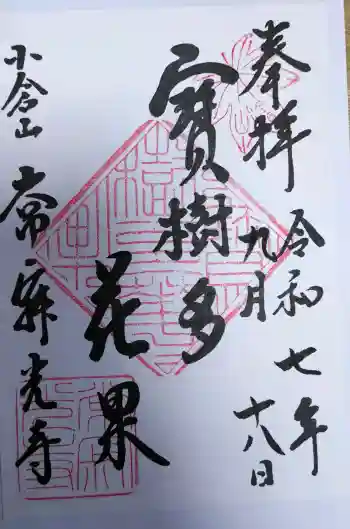 奉拝
令和七年
九月十八日
寳樹多
花果
小倉山
常寂光寺